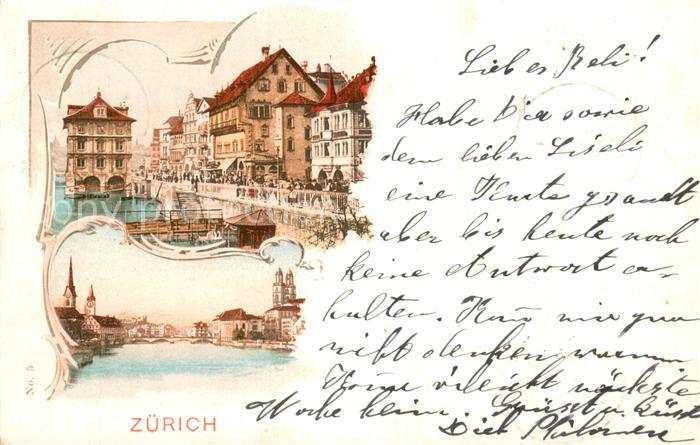 Liebes Beli!
Habe Dir sowie
dem lieben Liseli
eine Karte gesandt
aber bis heute noch
keine Antwort er-
halten. Kann mir gar
nicht denken warum
Komme vieleicht nächste
Woche heim. Grüsst u. küsst
Dich
No. 5
ZÜRICH